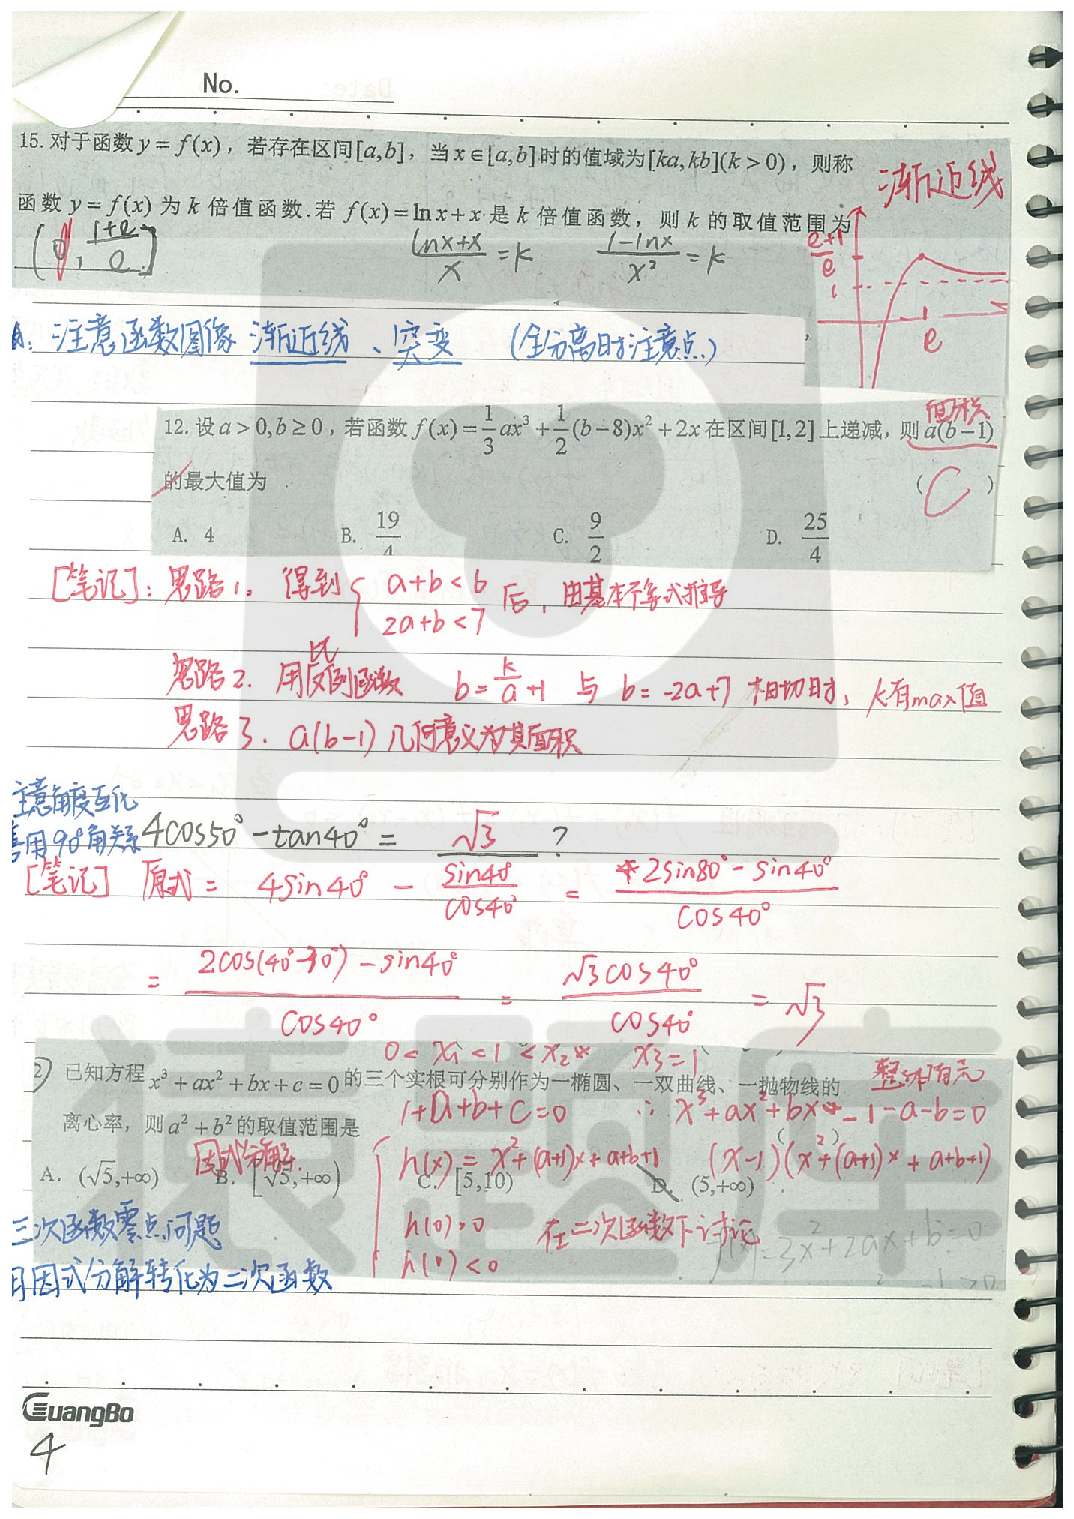 No.
15. 对于函数 y = f(x)，若存在区间[a,b]，当x∈[a,b]时的值域为[ka,kb](k > 0)，则称
渐近线
函数 y = f(x) 为 k 倍值函数.若 f(x)=lnx+x 是 k 倍值函数，则 k 的取值范围为
(0, \frac{1+e}{e}]
\frac{lnx+x}{x} = k  \frac{1-lnx}{x^2} = k
\frac{e+1}{e}
1
e
注意函数图像渐近线、突变 (全分离时注意点)
面积
12. 设 a > 0, b ≥ 0，若函数 f(x) = \frac{1}{3}ax³ + \frac{1}{2}(b−8)x² + 2x 在区间[1,2]上递减，则 a(b−1)
的最大值为 ( C )
A. 4 B. \frac{19}{4} C. \frac{9}{2} D. \frac{25}{4}
[笔记]：思路1. 得到 { a+b<b 后，由基本不等式推导
2a+b<7
比
思路2. 用反例函数 b=\frac{k}{a}+1 与 b=-2a+7 相切时，k有max值
思路3. a(b-1) 几何意义为其面积
主意角度互化
善用90°角关系 4cos50°-tan40° = √3 ?
[笔记] 原式 = 4sin40° - \frac{sin40}{cos40°} = \frac{2sin80°-sin40°}{cos40°}
= \frac{2cos(40°-30°)-sin40°}{cos40°} = \frac{√3cos40°}{cos40°} = √3
0< x₁ <1 <x₂ x₃=1
2) 已知方程 x³+ax²+bx+c=0 的三个实根可分别作为一椭圆、一双曲线、一抛物线的
整体消元
1+a+b+c=0 ∴ x³+ax²+bx-1-a-b=0
离心率，则 a²+b² 的取值范围是 ( )
因式分解. h(x)=x²+(a+1)x+a+b+1 (x-1)(x²+(a+1)x+a+b+1)
A. (√5,+∞) B. [√5,+∞) C. [5,10) D. (5,+∞)
三次函数零点问题 h(0)>0 在二次函数下讨论
=3x²+2ax+b=0
用因式分解转化为二次函数 h(1)<0
GuangBo
4